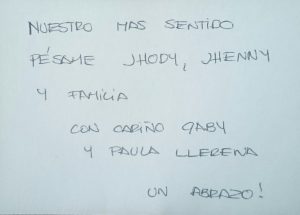 NUESTRO MAS SENTIDO
PÉSAME JHODY, JHENNY
Y FAMILIA
CON CARIÑO GABY
Y PAULA LLERENA
UN ABRAZO!